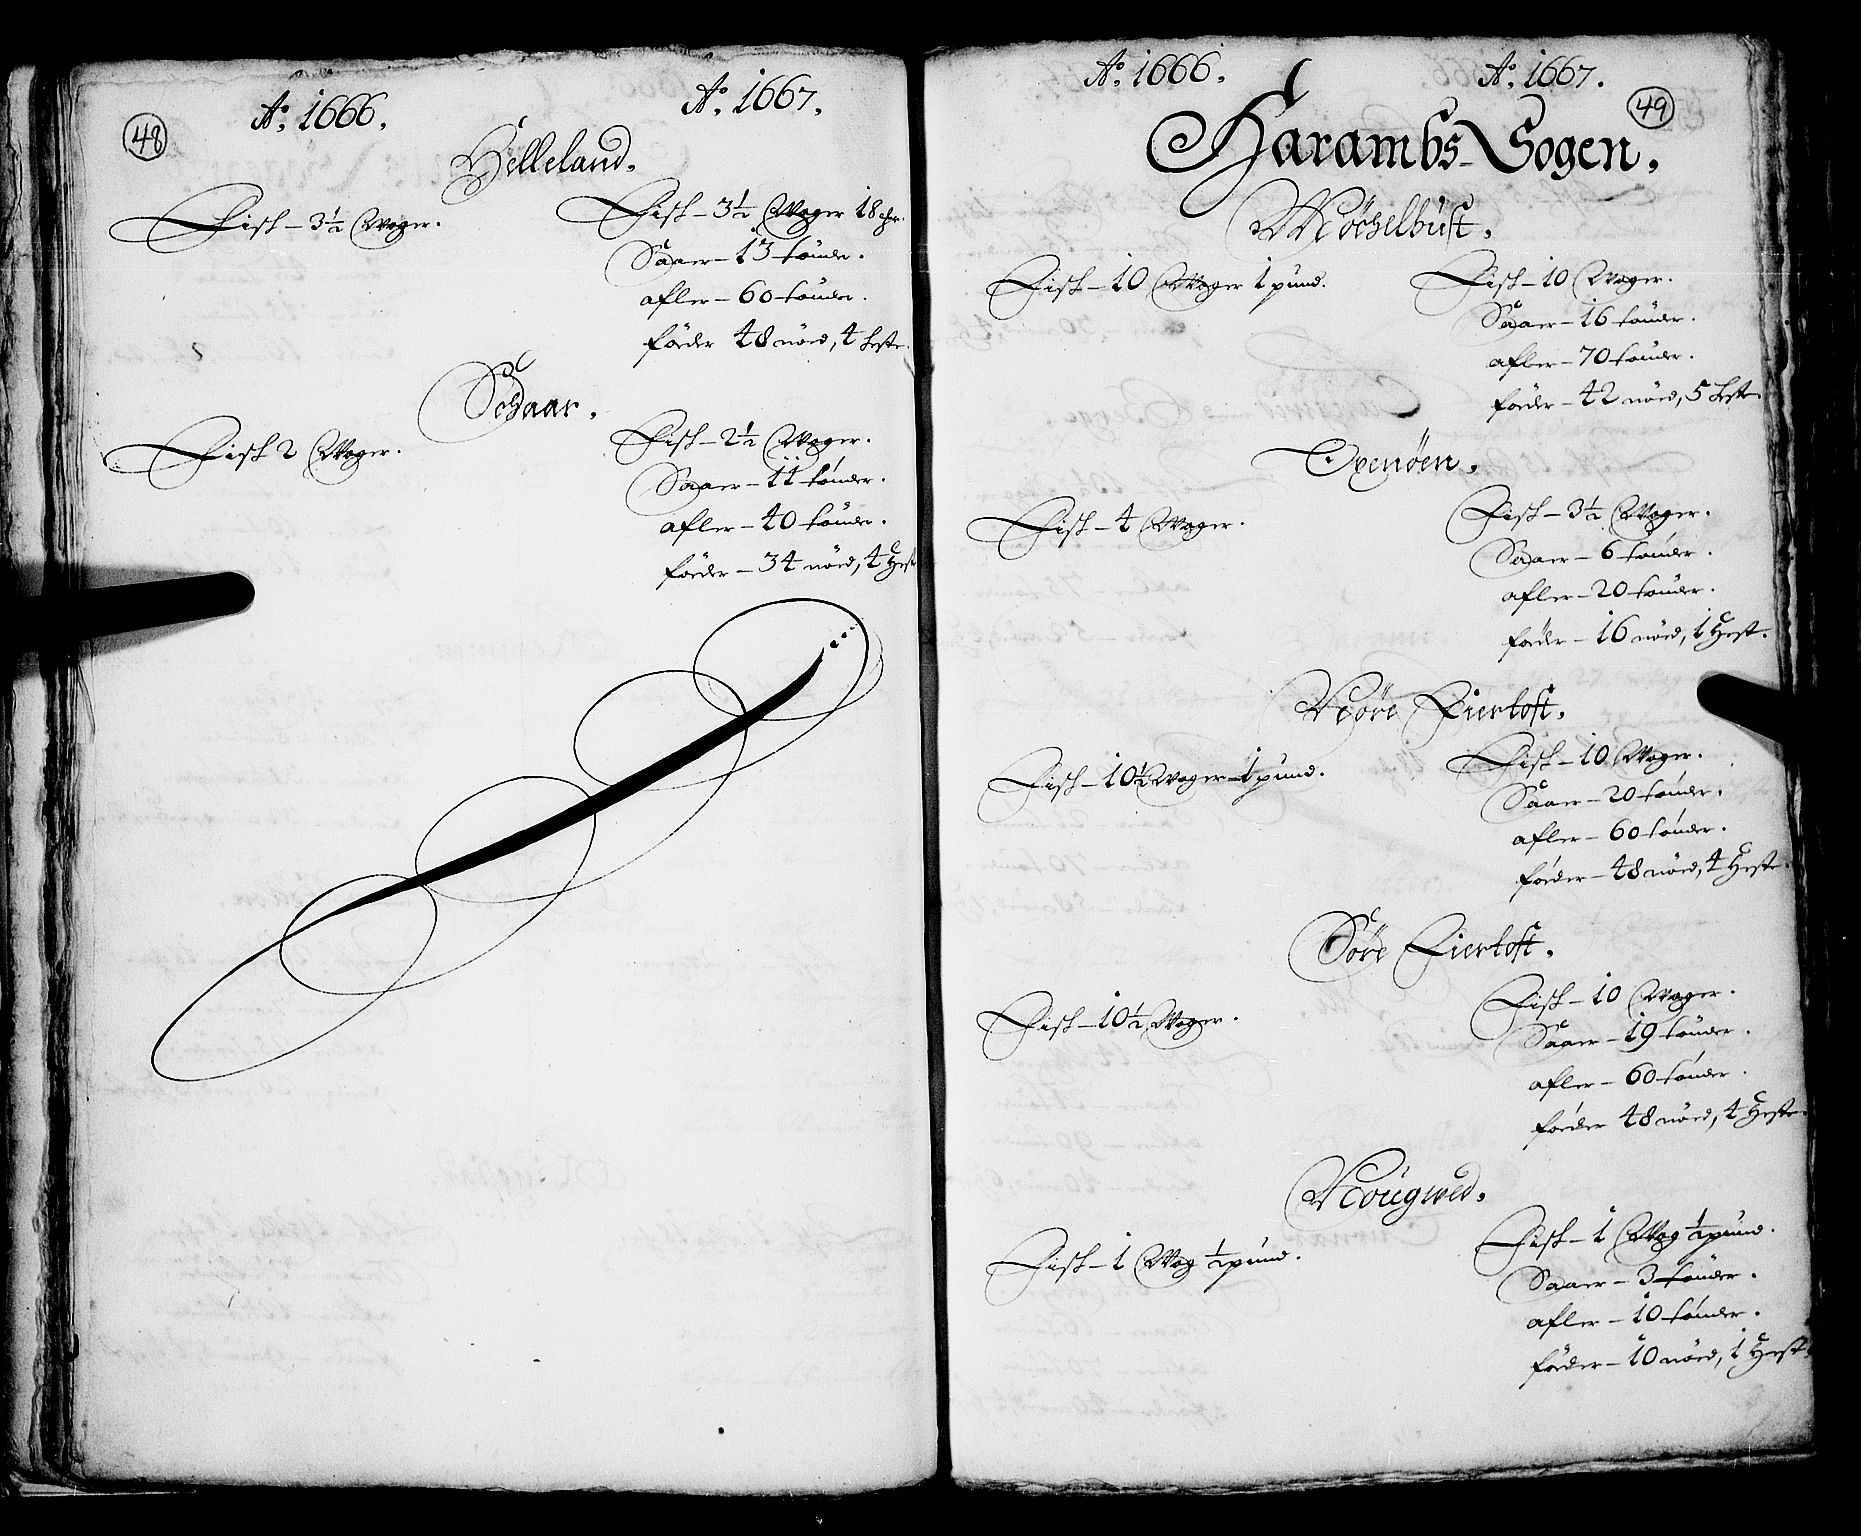 48
Aº. 1666.
Aº. 1667.
Helleland.
Fisk – 3½ Woger.
Fisk – 3½ Woger 18
Saaer – 13 tønder.
afler – 60 tønder.
føder 48 nøed, 4 heste.
Fisk 2 Woger.
Fisk – 2½ Woger.
Saaer – 11 tønder.
afler – 40 tønder.
føder – 34 nøed, 4 Hest
49
Aº. 1666.
Aº. 1667.
Harambs-Sogen.
Möchelbust.
Fisk – 10 Woger 1 pund.
Fisk – 10 Woger.
Saaer – 16 tønder.
afler – 70 tønder.
føder – 42 nøed, 5 heste.
Oxenöen.
Fisk – 4 Woger.
Fisk – 3½ Woger.
Saaer – 6 tønder.
afler – 20 tønder.
føder – 16 nøed, 1 Hest.
Nöre Fiertoft.
Fisk – 10½ Woger – 1 pund.
Fisk – 10 Woger.
Saaer – 20 tønder.
afler – 60 tønder.
føder – 48 nøed, 4 Heste.
Söre Fiertoft.
Fisk – 10½ Woger.
Fisk – 10 Woger.
Saaer – 19 tønder.
afler – 60 tønder.
føder 48 nøed, 4 Heste.
Nougwed.
Fisk – 1 Wog ½ pund.
Fisk – 1 Wog ½ pund.
Saaer – 3 tønder.
afler – 10 tønder.
føder – 10 nøed, 1 Hest.